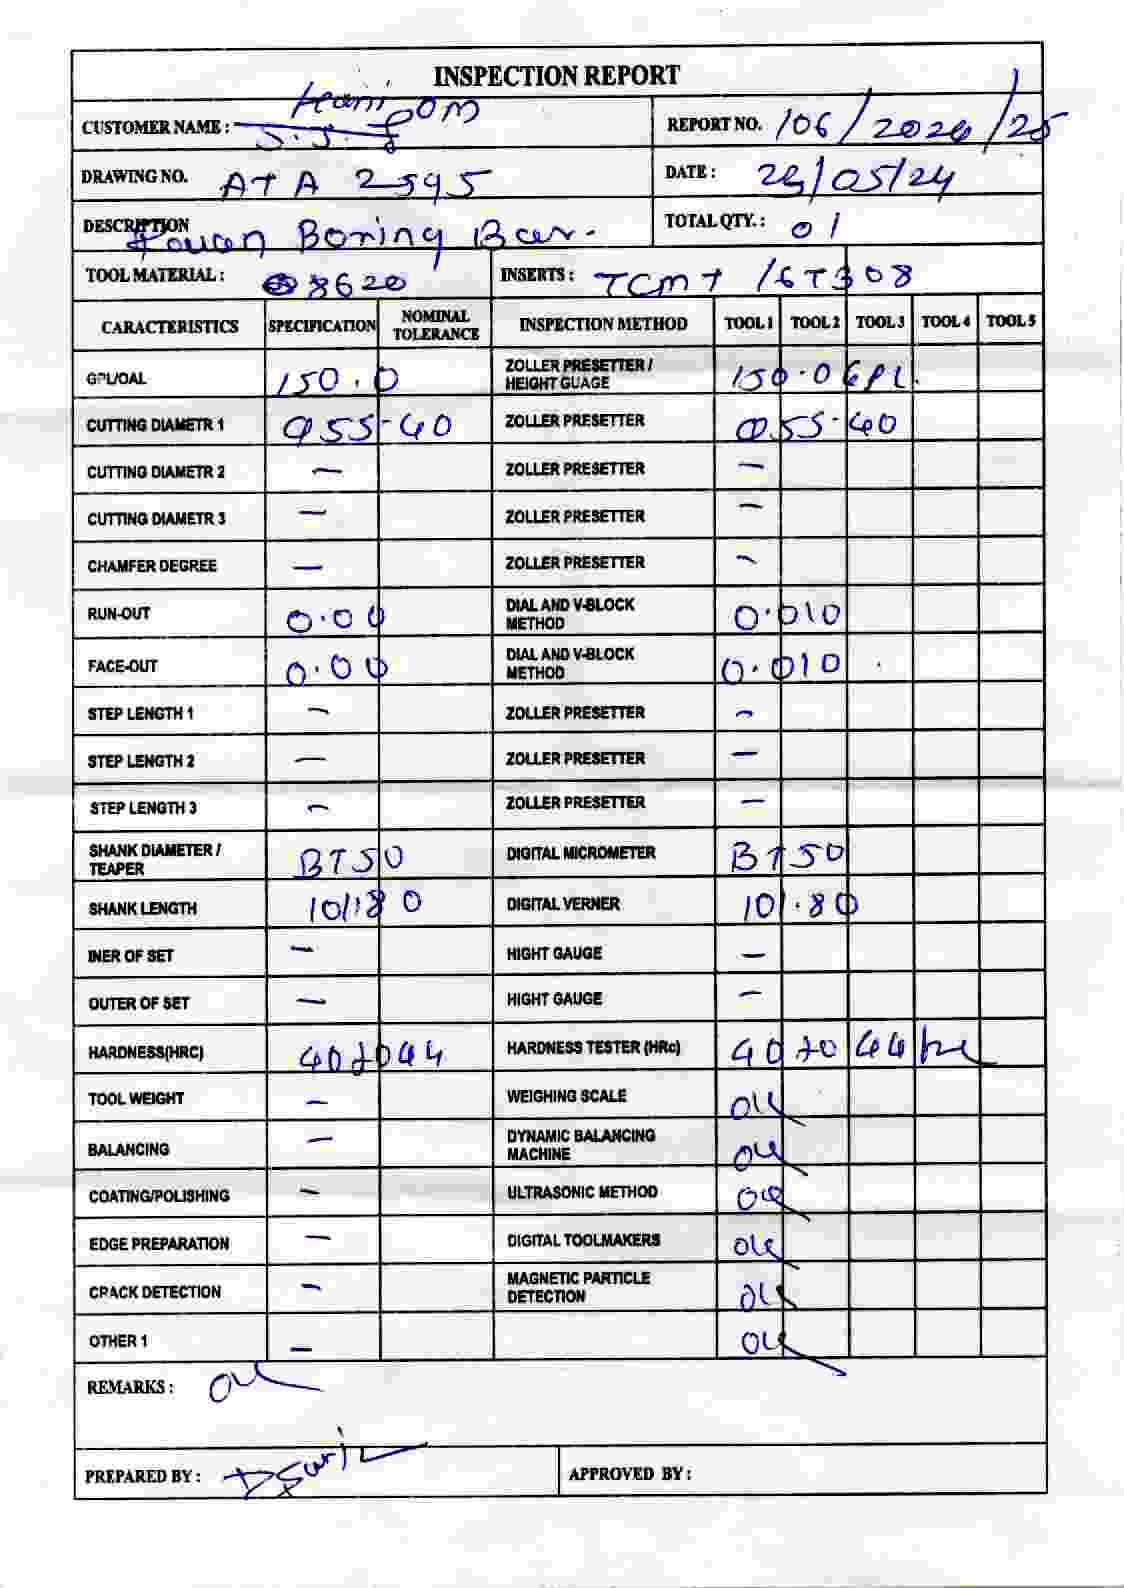 INSPECTION REPORT
team
CUSTOMER NAME : OM
REPORT NO. 106/2024/25
DRAWING NO. ATA 2595
DATE : /05/24
DESCRIPTION Boring Bar.
TOTAL QTY. : 01
TOOL MATERIAL : 8620 INSERTS : TCMT 16T308
CARACTERISTICS SPECIFICATION NOMINAL TOLERANCE INSPECTION METHOD TOOL 1 TOOL 2 TOOL 3 TOOL 4 TOOL 5
GPL/OAL 150.0 ZOLLER PRESETTER / HEIGHT GUAGE 150.0 GPL.
CUTTING DIAMETR 1 Φ55.40 ZOLLER PRESETTER Φ55.40
CUTTING DIAMETR 2 — ZOLLER PRESETTER —
CUTTING DIAMETR 3 — ZOLLER PRESETTER —
CHAMFER DEGREE — ZOLLER PRESETTER —
RUN-OUT 0.00 DIAL AND V-BLOCK METHOD 0.010
FACE-OUT 0.00 DIAL AND V-BLOCK METHOD 0.010
STEP LENGTH 1 — ZOLLER PRESETTER —
STEP LENGTH 2 — ZOLLER PRESETTER —
STEP LENGTH 3 — ZOLLER PRESETTER —
SHANK DIAMETER / TEAPER BT50 DIGITAL MICROMETER BT50
SHANK LENGTH 101.80 DIGITAL VERNER 101.80
INER OF SET — HIGHT GAUGE —
OUTER OF SET — HIGHT GAUGE —
HARDNESS(HRC) 40 to 44 HARDNESS TESTER (HRc) 40 to 44
TOOL WEIGHT — WEIGHING SCALE OK
BALANCING — DYNAMIC BALANCING MACHINE OK
COATING/POLISHING — ULTRASONIC METHOD OK
EDGE PREPARATION — DIGITAL TOOLMAKERS OK
CRACK DETECTION — MAGNETIC PARTICLE DETECTION OK
OTHER 1 — OK
REMARKS : OK
PREPARED BY :
APPROVED BY :